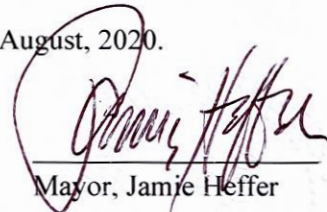 August, 2020.
Jamie Heffer
Mayor, Jamie Heffer